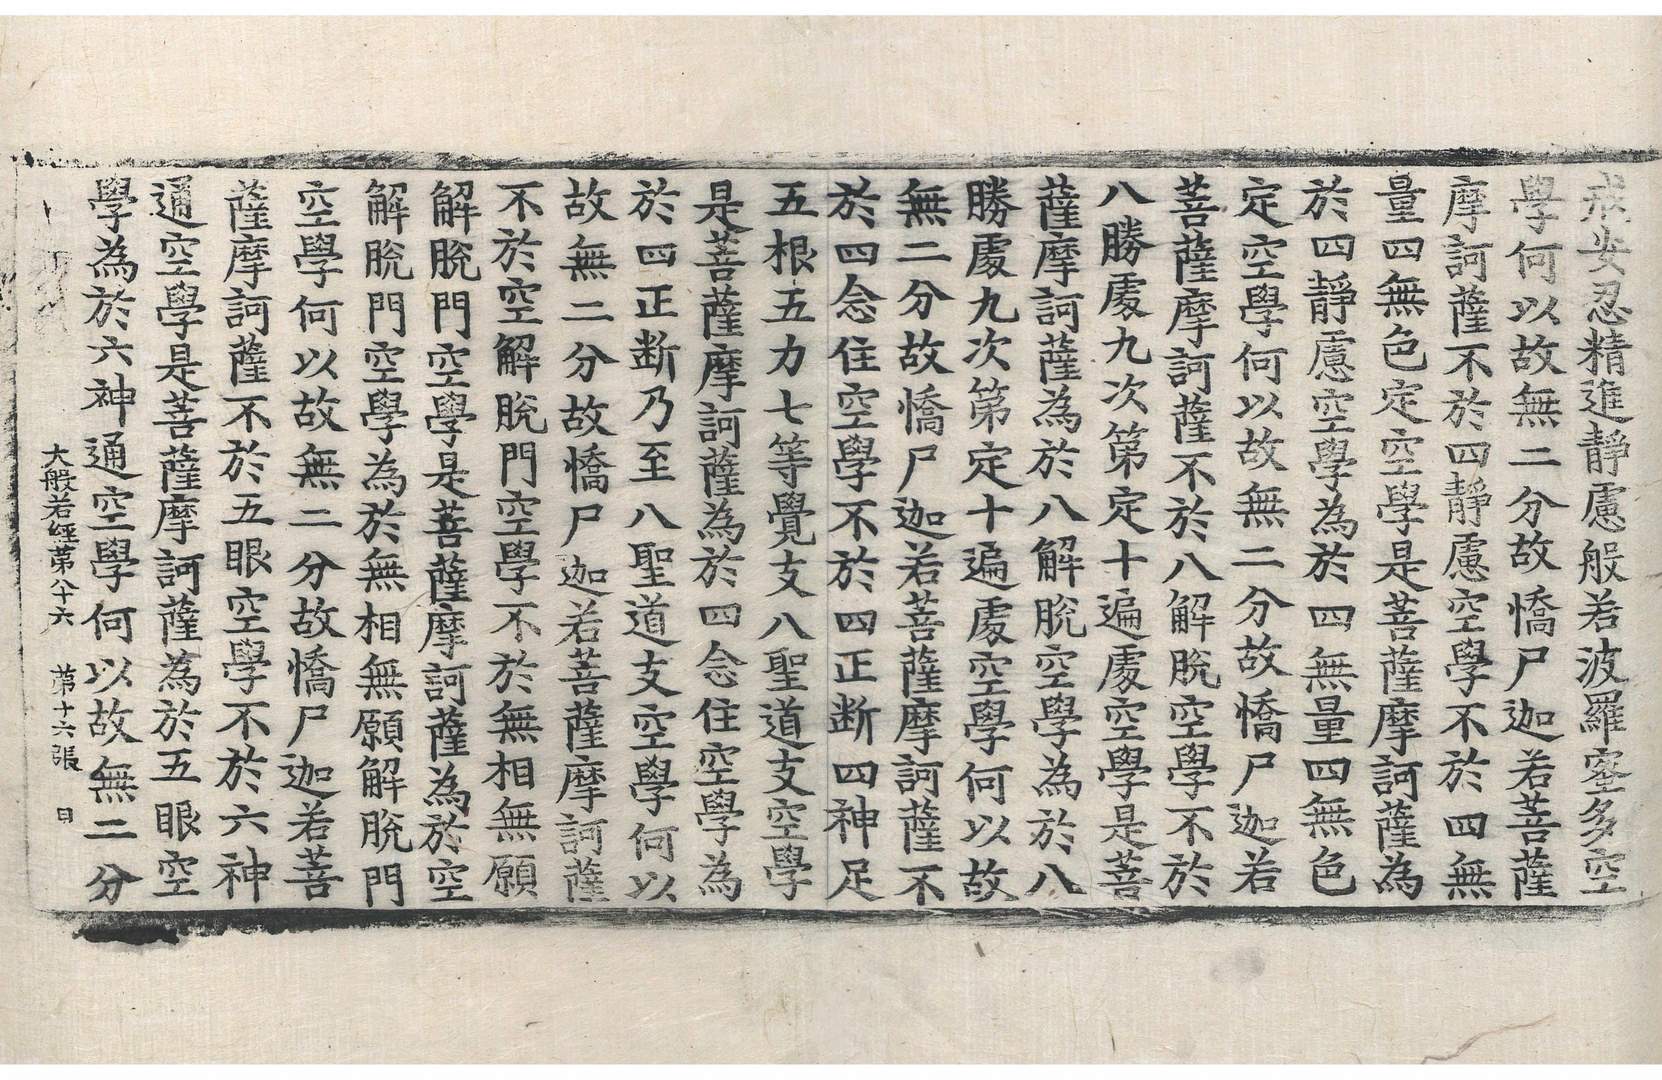 戒安忍精進靜慮般若波羅蜜多空
學何以故無二分故憍尸迦若菩薩
摩訶薩不於四靜慮空學不於四無
量四無色定空學是菩薩摩訶薩為
於四靜慮空學為於四無量四無色
定空學何以故無二分故憍尸迦若
菩薩摩訶薩不於八解脫空學不於
八勝處九次第定十遍處空學是菩
薩摩訶薩為於八解脫空學為於八
勝處九次第定十遍處空學何以故
無二分故憍尸迦若菩薩摩訶薩不
於四念住空學不於四正断四神足
五根五力七等覺支八聖道支空學
是菩薩摩訶薩為於四念住空學為
於四正断乃至八聖道支空學何以
故無二分故憍尸迦若菩薩摩訶薩
不於空解脫門空學不於無相無願
解脫門空學是菩薩摩訶薩為於空
解脫門空學為於無相無願解脫門
空學何以故無二分故憍尸迦若菩
薩摩訶薩不於五眼空學不於六神
通空學是菩薩摩訶薩為於五眼空
學為於六神通空學何以故無二分
大般若經第八十六 第十六張 日